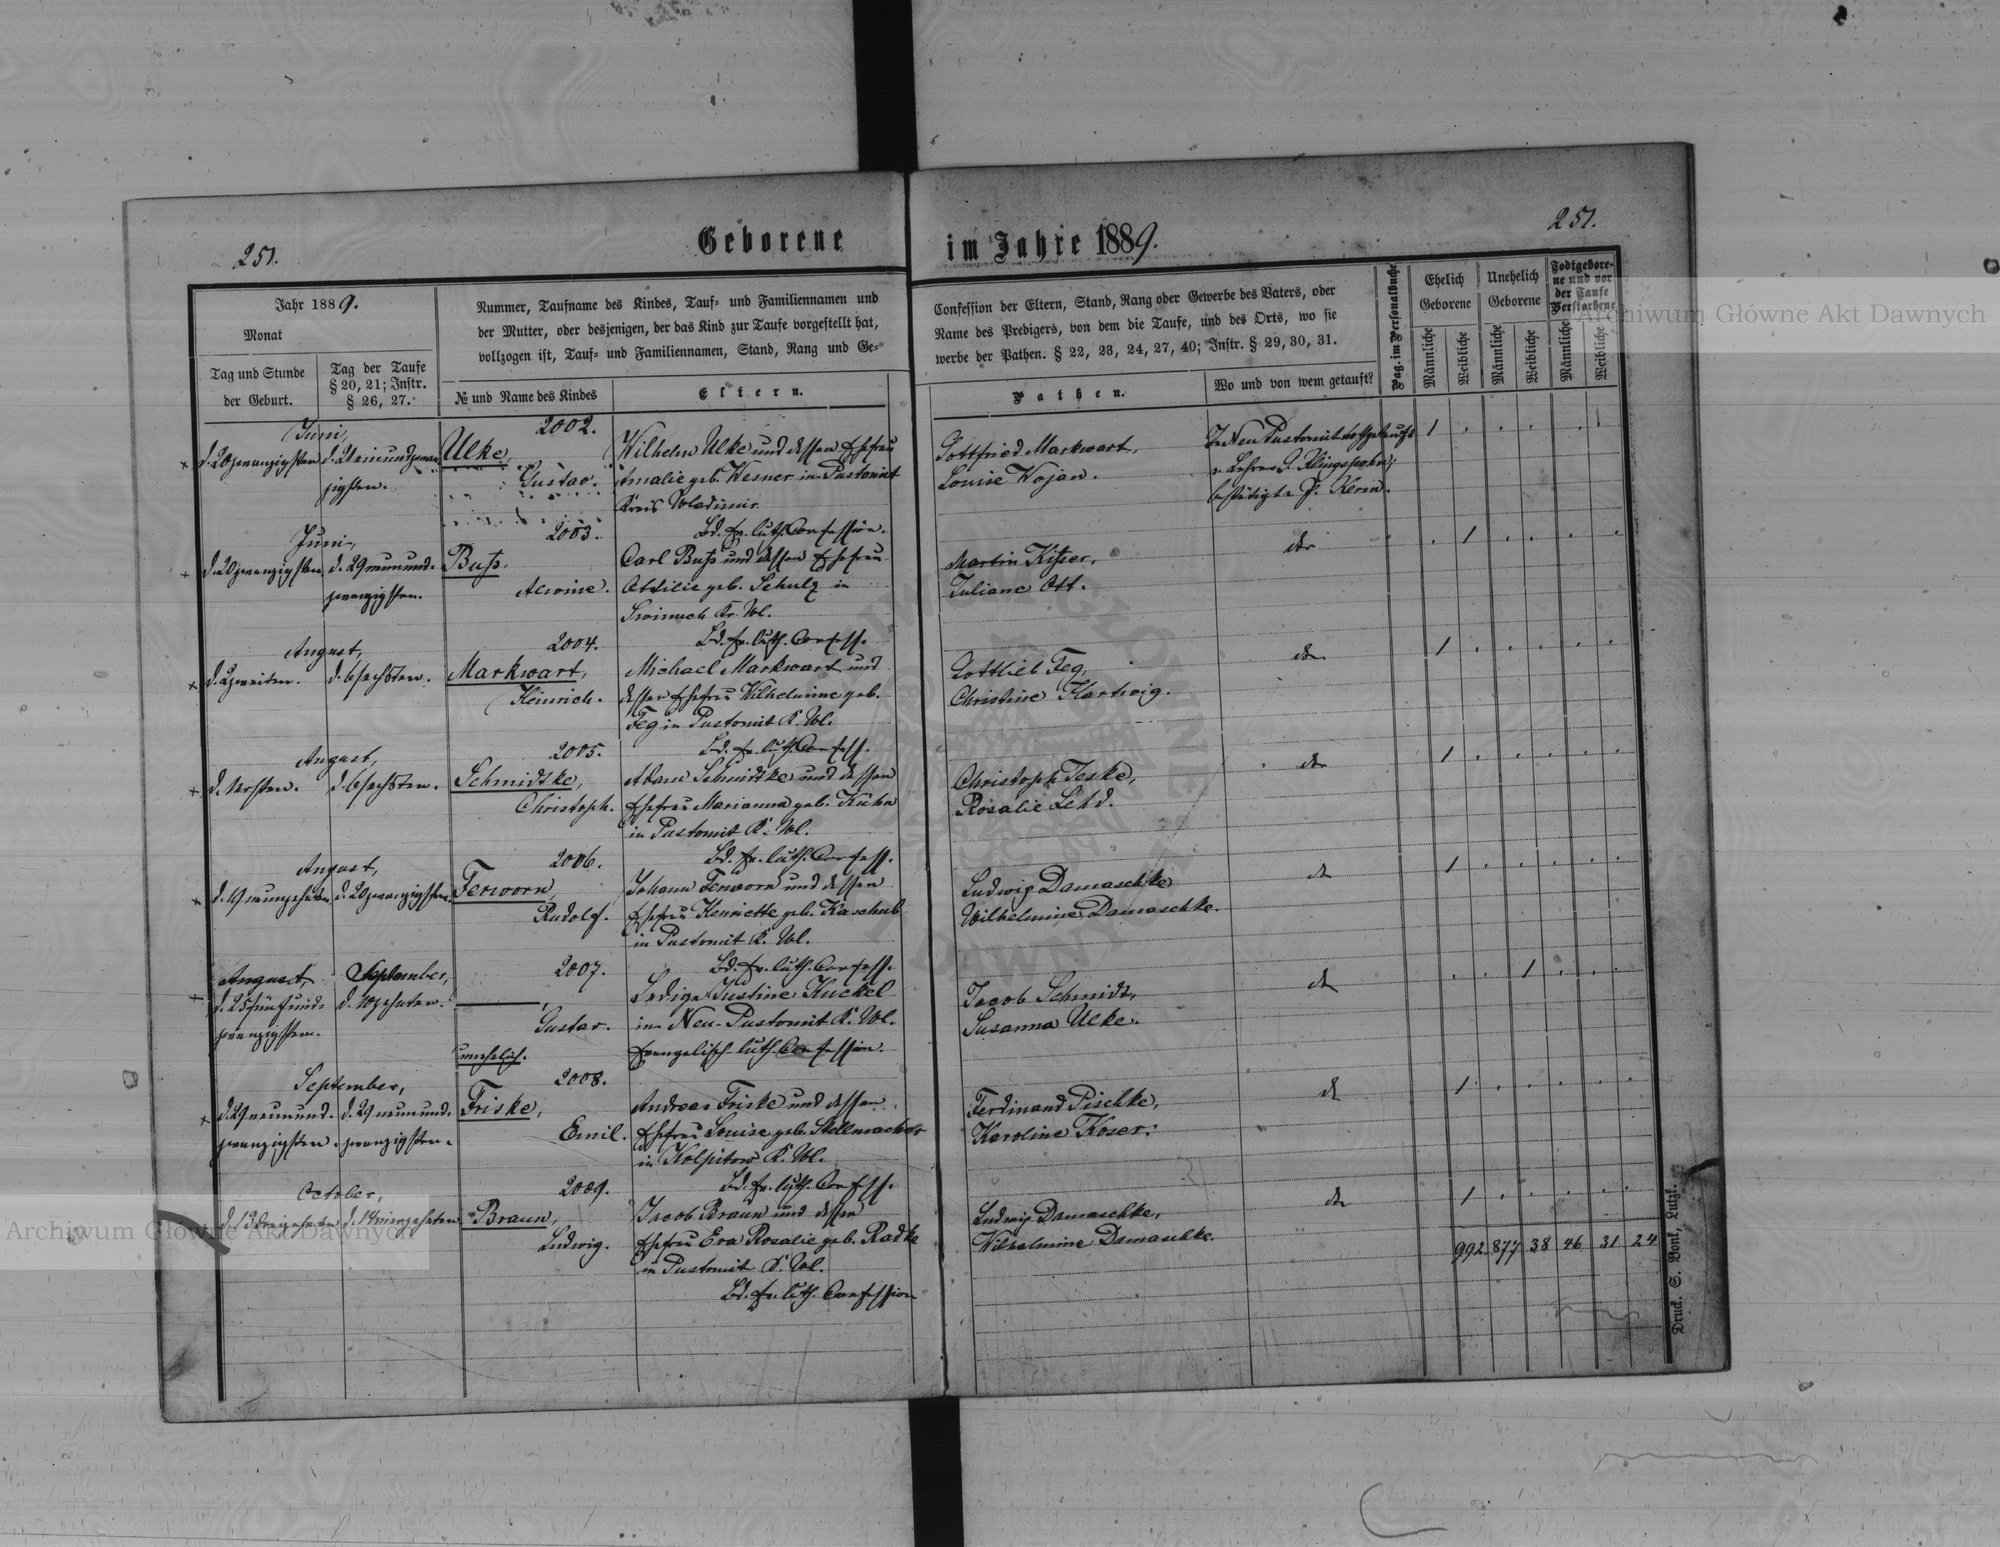 251.
Geborene
im Jahre 1889.
251.
Jahr 1889.
Monat
Tag und Stunde
der Geburt.
Tag der Taufe
§ 20, 21; Instr.
§ 26, 27.
Nummer, Taufname des Kindes, Tauf- und Familiennamen und
der Mutter, oder desjenigen, der das Kind zur Taufe vorgestellt hat,
vollzogen ist, Tauf- und Familiennamen, Stand, Rang und Ge-
№ und Name des Kindes
Eltern.
Confession der Eltern, Stand, Rang oder Gewerbe des Vaters, oder
Name des Predigers, von dem die Taufe, und des Orts, wo sie
werbe der Pathen. § 22, 23, 24, 27, 40; Instr. § 29, 30, 31.
Pathen.
Wo und von wem getauft?
Pag. im Personalbuche
Ehelich
Geborene
Unehelich
Geborene
Todtgebore-
ne und vor
der Taufe
Verstorbene
Männliche
Weibliche
Männliche
Weibliche
Männliche
Weibliche
Juni,
d. 20 zwanzigsten
d. 21 einundzwan-
zigsten.
2002.
Ulke,
Gustav.
Wilhelm Ulke und dessen Ehefrau
Amalie geb. Wesner in Pustomit
Kreis Wladimir
Bd. Ev. luth. Confession.
Gottfried Markwart,
Louise Wojan.
In Neu Pustomit nothgetauft
v. Lehrer
bestätigt v. P. Kerm.
1
Juni,
d. 20 zwanzigsten
d. 29 neunund-
zwanzigsten.
2003.
Buss.
Alwine.
Carl Buss und dessen Ehefrau
Ottilie geb. Schulz in
Swinuch Kr. Wl.
Bd. Ev. luth. Confess.
Martin
Juliane Ott.
do
1
August,
d. 2 zweiten.
d. 6 sechsten.
2004.
Markwart,
Heinrich.
Michael Markwart und
dessen Ehefrau Wilhelmine geb.
Feg in Pustomit K. Wl.
Bd. Ev. luth. Confess.
Gottlieb Feg,
Christine Hartwig.
do
1
August,
d. 1 ersten.
d. 6 sechsten.
2005.
Schmidtke,
Christoph.
Adam Schmidtke und dessen
Ehefrau Marianna geb. Kühn
in Pustomit K. Wl.
Bd. Ev. luth. Confess.
Christoph Jeske,
Rosalie Lehd.
do
1
August,
d. 19 neunzehnten
d. 20 zwanzigsten
2006.
Ferworn,
Rudolf.
Johann Ferworn und dessen
Ehefrau Henriette geb. Kaschub
in Pustomit K. Wl.
Bd. Ev. luth. Confess.
Ludwig Damaschke
Wilhelmine Damaschke.
do
1
August,
September,
d. 25 fünfund-
zwanzigsten.
d. 10 zehnten.
2007.
Gustav.
unehelich.
Ledige Justine Kuckel
in Neu-Pustomit K. Wl.
Evangelisch luth. Confession.
Jacob Schmidt,
Susanna Ulke.
do
1
September,
d. 29 neunund-
zwanzigsten.
d. 29 neunund-
zwanzigsten.
2008.
Friske,
Emil.
Andreas Friske und dessen
Ehefrau Louise geb. Stellmacher
in Kolpitow K. Wl.
Bd. Ev. luth. Confess.
Ferdinand Pischke,
Karoline Koser.
do
1
October,
d. 13 dreizehnten
d. 14 vierzehnten
2009.
Braun,
Ludwig.
Jacob Braun und dessen
Ehefrau Eva Rosalie geb. Radke
in Pustomit K. Wl.
Bd. Ev. luth. Confession
Ludwig Damaschke,
Wilhelmine Damaschke.
do
1
992 877 38 46 31 24
Druck. S. Bonk, Lutzk.
Archiwum Główne Akt Dawnych
Archiwum Główne Akt Dawnych